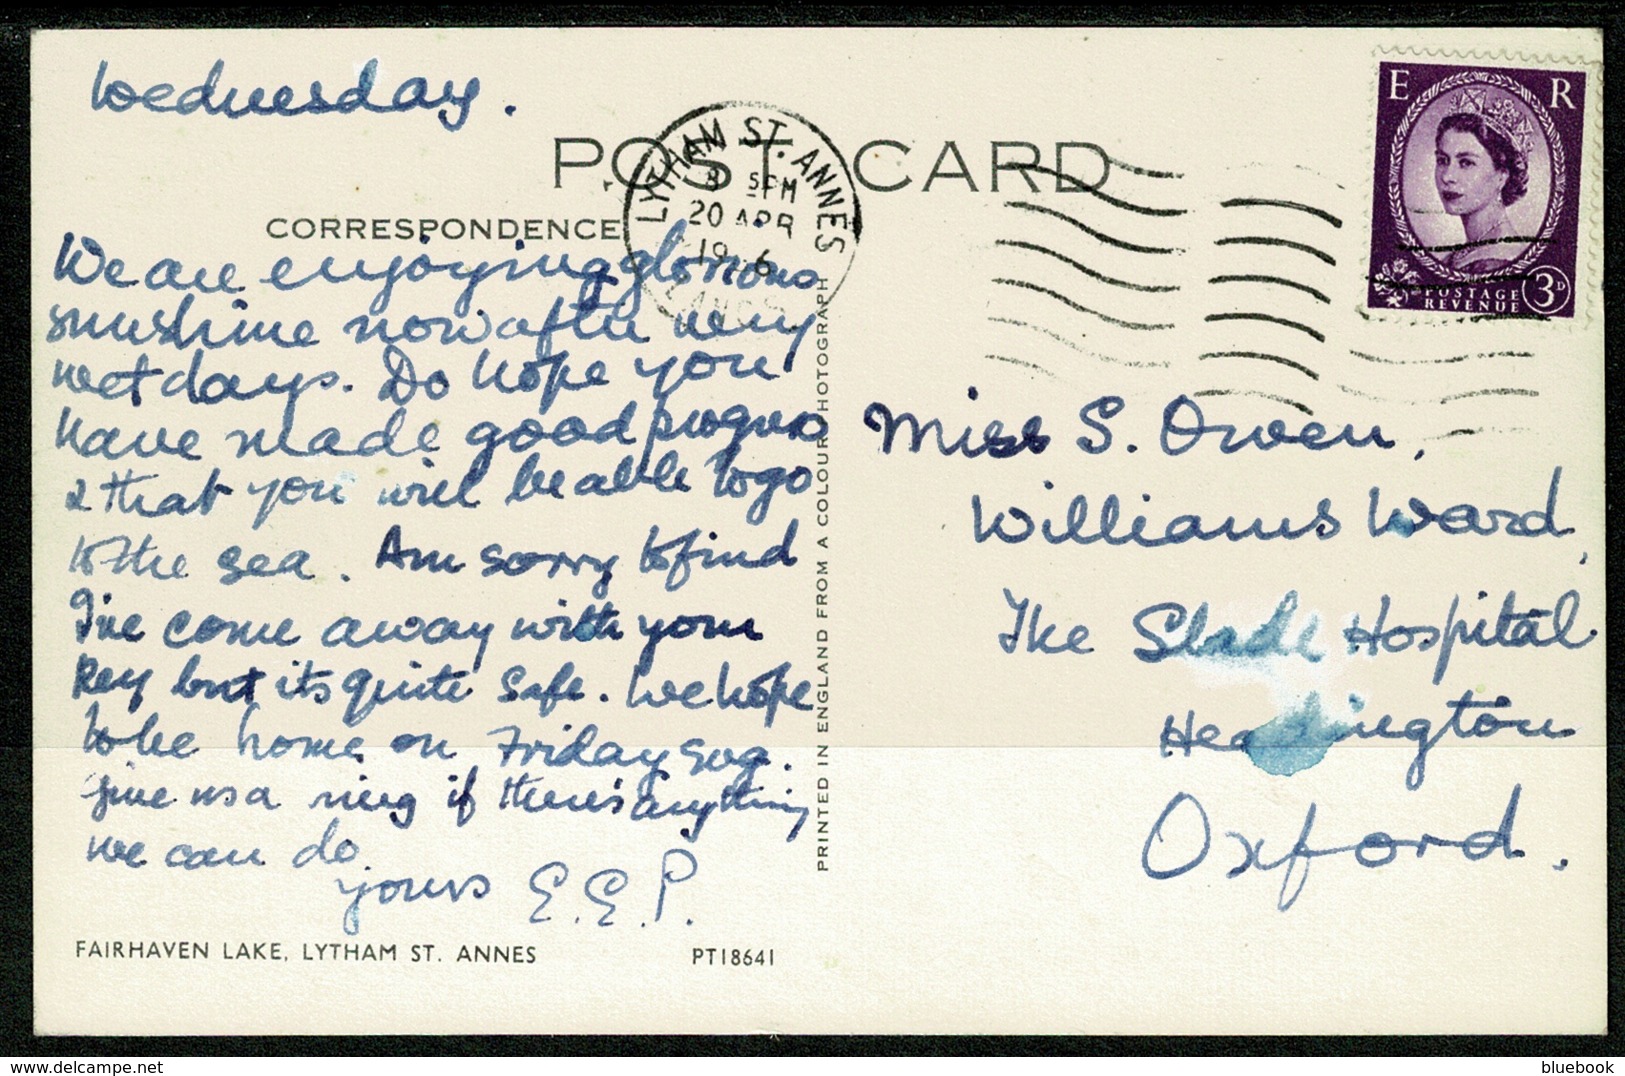 Wednesday.
POST CARD
CORRESPONDENCE
LYTHAM ST. ANNES
PM
20 APR
19 6
LANCS
E R
POSTAGE
REVENUE
3D
We are enjoying glorious
sunshine now after very
wet days. Do hope you
have made good progress
& that you will be able to go
to the sea. Am sorry to find
I've come away with your
Key but its quite safe. We hope
to be home on Friday evg.
Give us a ring if there's anything
we can do.
yours E.E.P.
FAIRHAVEN LAKE, LYTHAM ST. ANNES
PT18641
PRINTED IN ENGLAND FROM A COLOUR PHOTOGRAPH
Miss S. Owen,
Williams Ward,
The Slade Hospital
Headington
Oxford.
bluebook